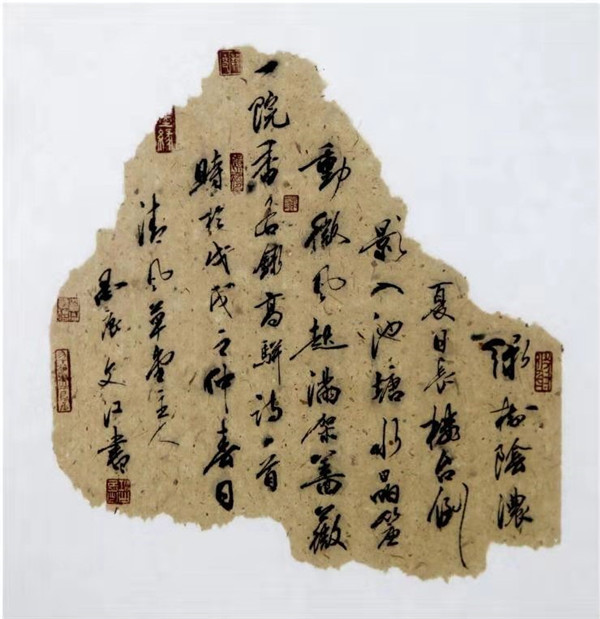 綠樹陰濃
夏日長樓台倒
影入池塘水晶簾
動微風起滿架薔薇
一院香右錄高駢詩一首
時於戊戌之仲春日
清風草堂主人
文江書